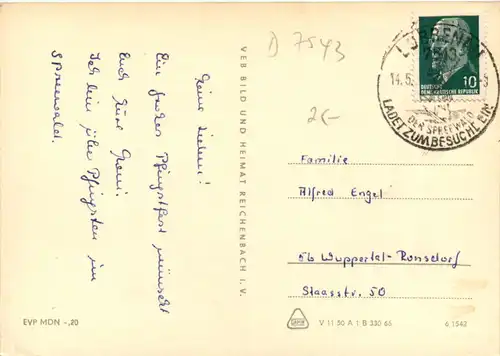 Meine Lieben!
Ein frohes Pfingstfest wünscht
Euch Eure Omi.
Ich bin über Pfingsten im
Spreewald.
VEB BILD UND HEIMAT REICHENBACH I. V.
D 7543
2,-
LÜBBENAU
14.5.
DER SPREEWALD
LADET ZUM BESUCHE EIN
10
DEUTSCHE
DEMOKRATISCHE REPUBLIK
Familie
Alfred Engel
56 Wuppertal-Ronsdorf
Staasstr. 50
EVP MDN -,20
V 11 50 A 1 B 330 65
6.1542